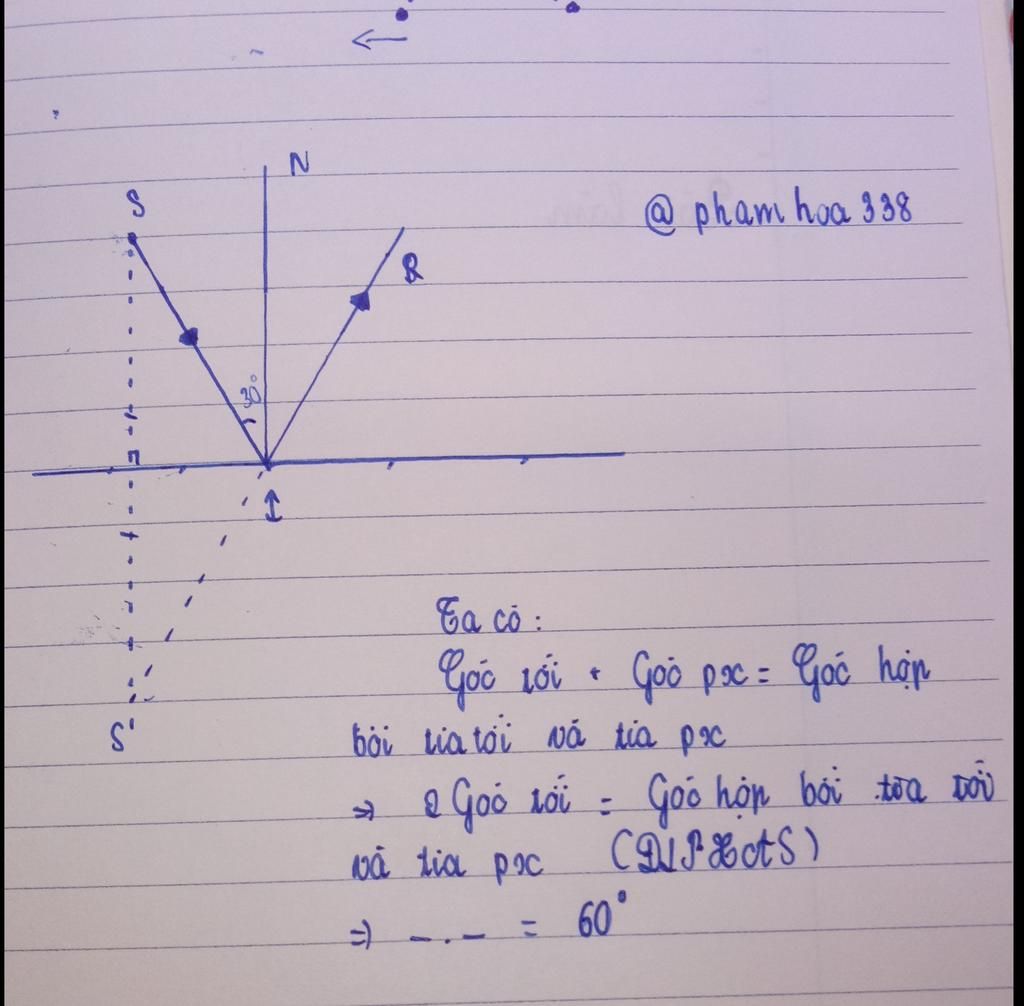 N
S
@ phamhoa338
R
30°
I
S'
Ta có:
Góc tới + Góc px = Góc hợp
bởi tia tới và tia px
=> 2 Góc tới = Góc hợp bởi tia tới
và tia px (ĐLPXAS)
=> -.- = 60°